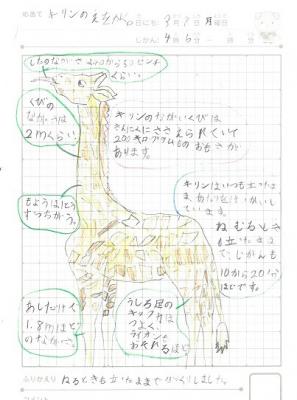 めあて キリンのえをかく。
日にち 3月7日 月曜日
じかん 4時5分〜 時 分
したのながさは40から50センチくらい。
くびの
ながさは
2mくらい。
キリンのながいくびは
きんにくにささえられていて
キログラムもの おもさが
あります。
もようは1とう
ずつちがう。
キリンはいつも立ったま
ま、
います。
ねむるとき
も立ったまま
で、じかんも
10から20分
ほどです。
あしだけで
1.8mほど
のながさ。
うしろ足の
キック力は
つよく、
ライオンも
おそれ
るほど。
ふりかえり ねるときも立ったままでびっくりしました。
コメント